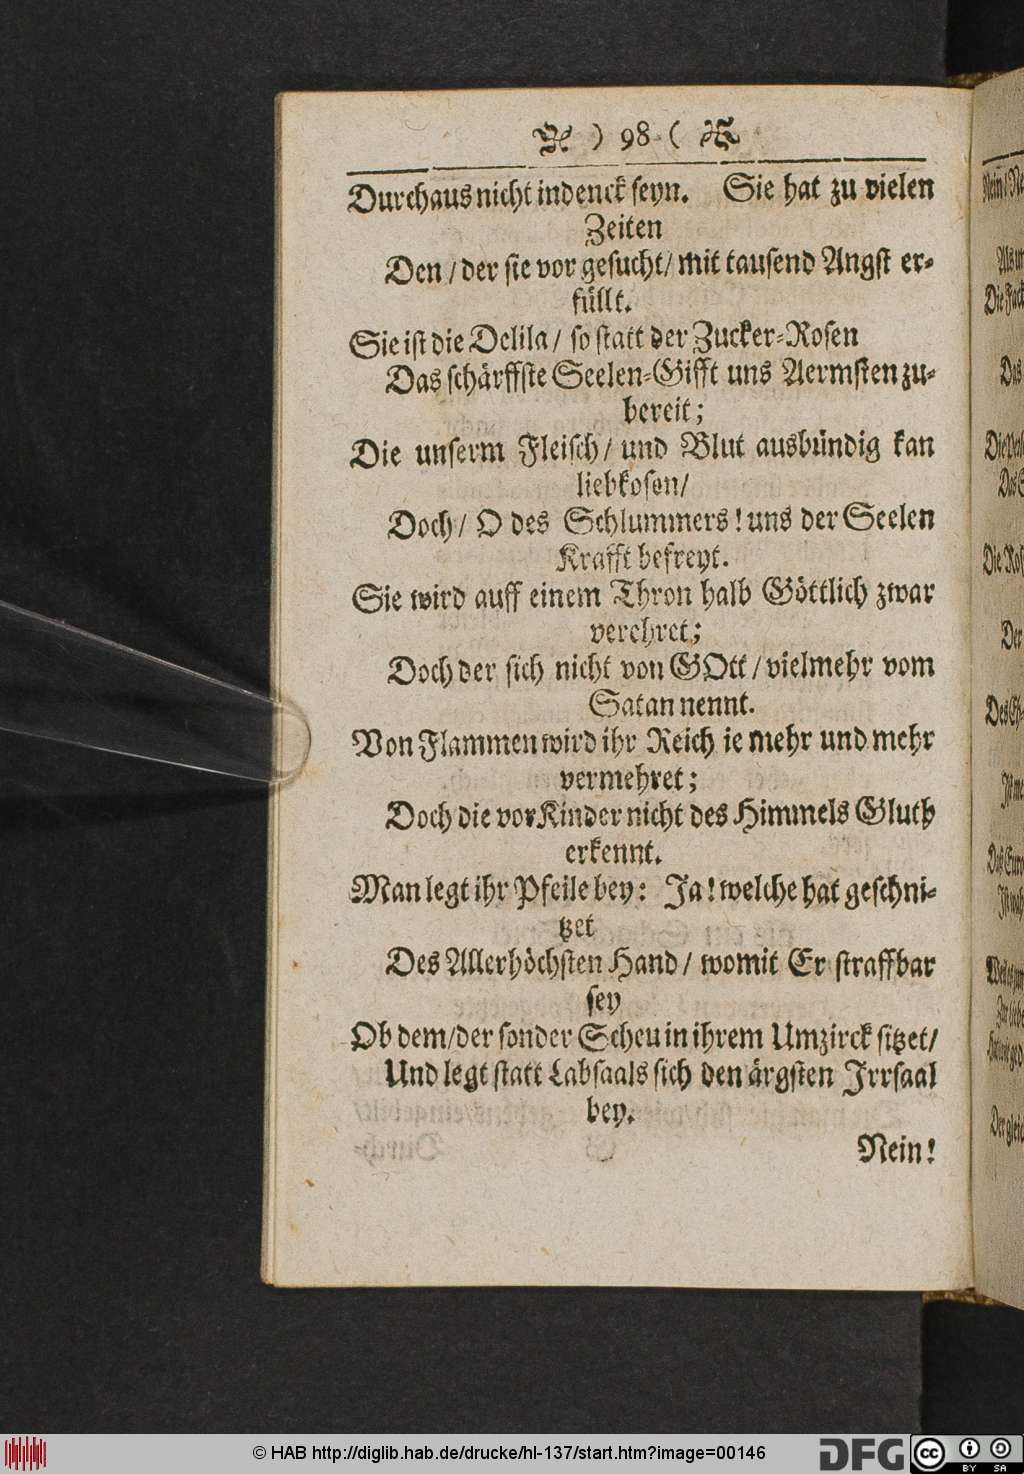 ) 98 (
Durchaus nicht indenck seyn. Sie hat zu vielen
Zeiten
Den / der sie vor gesucht / mit tausend Angst er-
füllt.
Sie ist die Delila / so statt der Zucker-Rosen
Das schärffste Seelen-Gifft uns Aermsten zu-
bereit;
Die unserm Fleisch / und Blut ausbündig kan
liebkosen /
Doch / O des Schlummers! uns der Seelen
Krafft befreyt.
Sie wird auff einem Thron halb Göttlich zwar
verehret;
Doch der sich nicht von GOtt / vielmehr vom
Satan nennt.
Von Flammen wird ihr Reich ie mehr und mehr
vermehret;
Doch die vor Kinder nicht des Himmels Gluth
erkennt.
Man legt ihr Pfeile bey: Ja! welche hat geschni-
tzet
Des Allerhöchsten Hand / womit Er straffbar
sey
Ob dem / der sonder Scheu in ihrem Umzirck sitzet /
Und legt statt Labsaals sich den ärgsten Irrsaal
bey.
Nein!
© HAB http://diglib.hab.de/drucke/hl-137/start.htm?image=00146
DFG
cc
BY SA